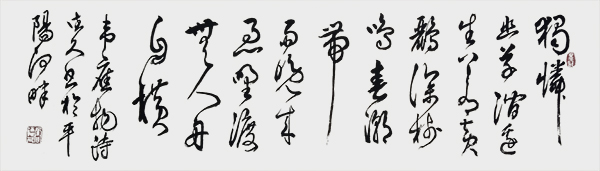 獨憐
幽草澗邊
生上有黃
鸝深樹
鳴春潮
帶
雨晚來
急野渡
無人舟
自橫
韋應物詩
久書於平
陽河畔